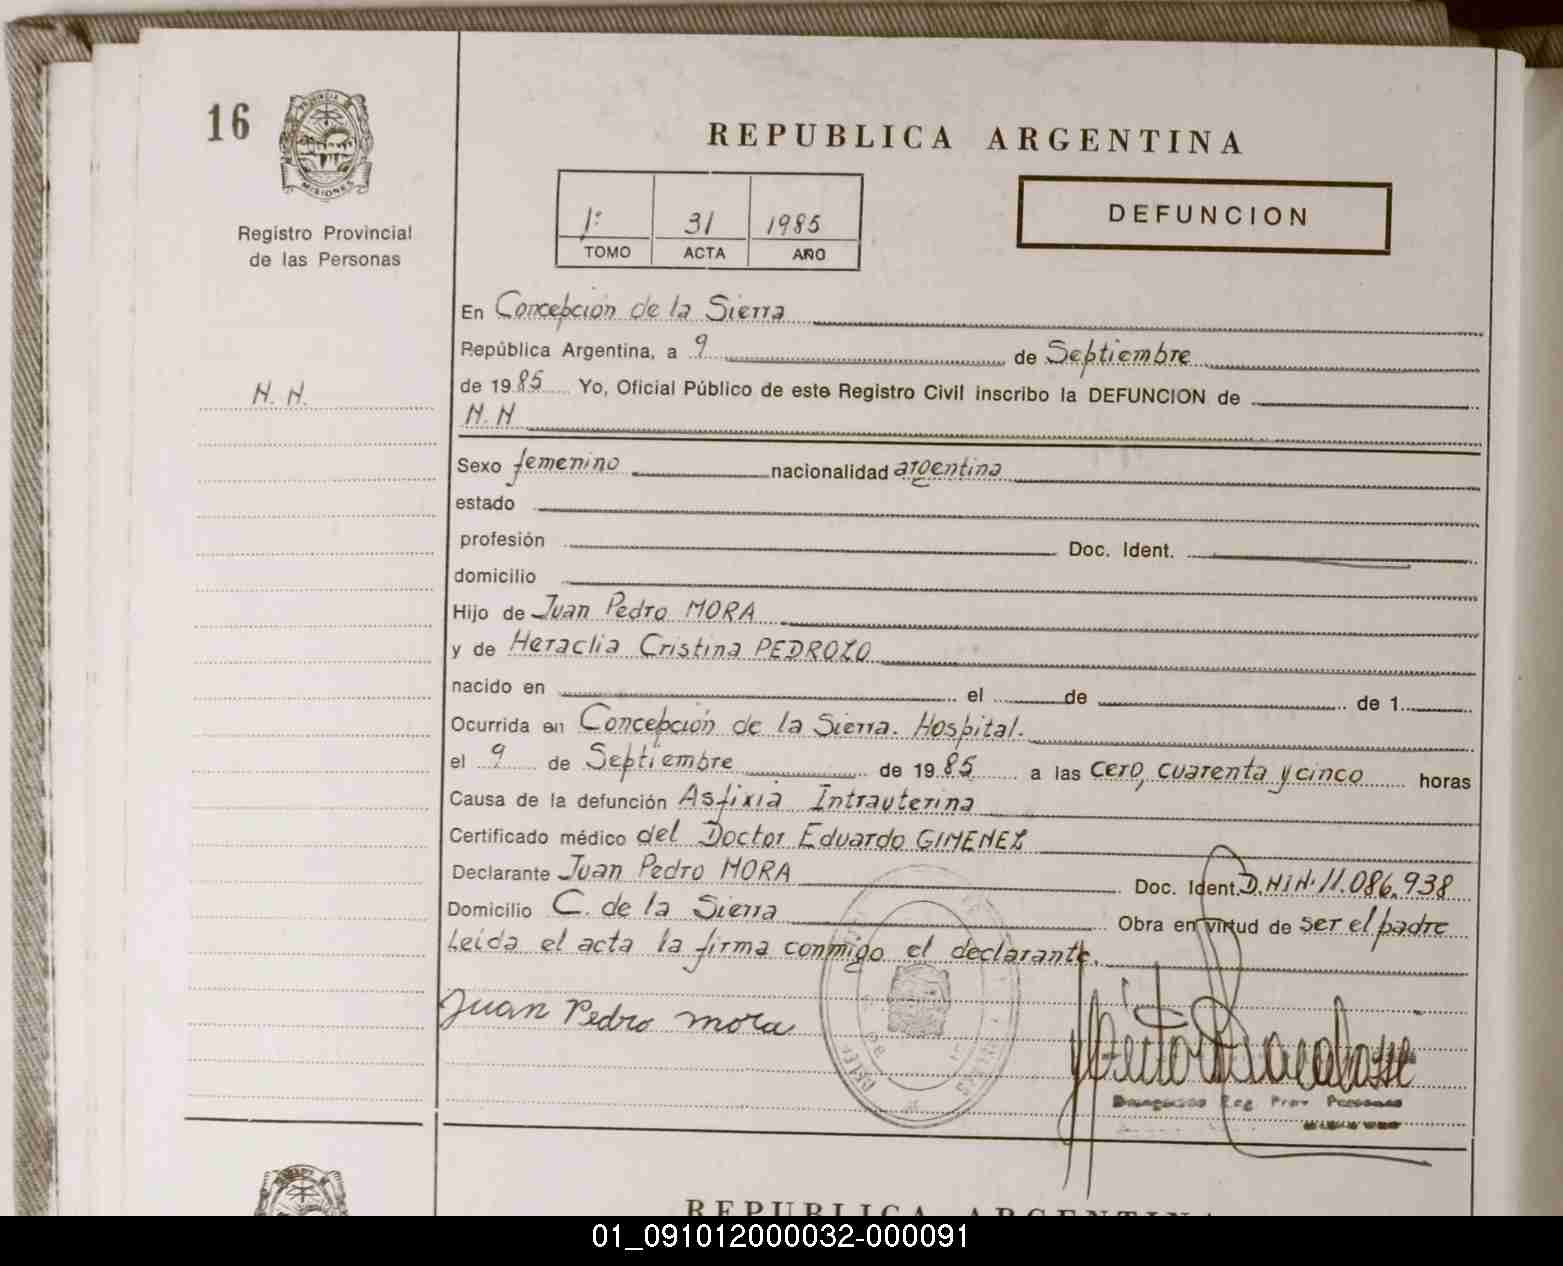 16
PROVINCIA DE
MISIONES
Registro Provincial
de las Personas
REPUBLICA ARGENTINA
1º 31 1985
TOMO ACTA AÑO
DEFUNCION
En Concepción de la Sierra
República Argentina, a 9 de Septiembre
N. N. de 1985 Yo, Oficial Público de este Registro Civil inscribo la DEFUNCION de
N.N
Sexo femenino nacionalidad argentina
estado
profesión Doc. Ident.
domicilio
Hijo de Juan Pedro MORA
y de Heraclia Cristina PEDROZO
nacido en el de de 1
Ocurrida en Concepción de la Sierra. Hospital.
el 9 de Septiembre de 1985 a las cero, cuarenta y cinco horas
Causa de la defunción Asfixia Intrauterina
Certificado médico del Doctor Eduardo GIMENEZ
Declarante Juan Pedro MORA Doc. Ident. D.N.I.N. 11.086.938
Domicilio C. de la Sierra Obra en virtud de ser el padre
Leida el acta la firma conmigo el declarante.
Juan Pedro mora
Reg Prov Personas
REPUBLICA ARGENTINA
01_091012000032-000091